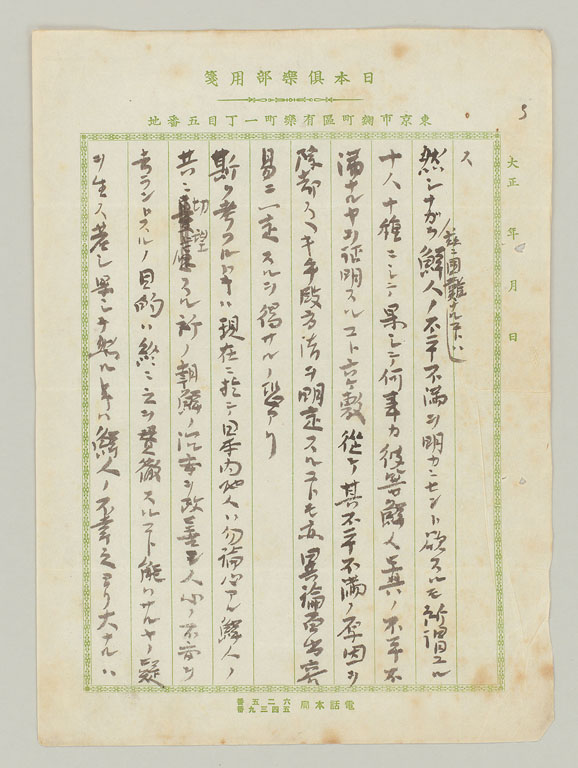 日本倶樂部用箋
東京市麹町區有樂町一丁目五番地
5
大正 年 月 日
ス
茲ニ困難ナルコトハ
然シナカラ鮮人ノ不平不満ヲ明カニセント欲スルモ所謂
十人十種ニシテ果シテ何事カ彼等鮮人ノ不平不
満ナルヤヲ証明スルコト六ケ敷従テ其不平不満ノ原因ヲ
除却スヘキ手段方法ヲ明定スルコトモ亦異論百出容
易ニ一定スルヲ得サルノ恐アリ
斯ク考フルトキハ現在ニ於テ日本内地人ハ勿論心アル鮮人ノ
共ニ切望スル所ノ朝鮮ノ治本ヲ改善シ人心ノ不安ヲ
ラントスルノ目的ハ終ニ之ヲ貫徹スルコト能ハサルヤノ疑
ヲ生ス若シ果シテ然ルトキハ鮮人ノ不幸之ヨリ大ナルハ
電話本局
六二五番
五四三九番